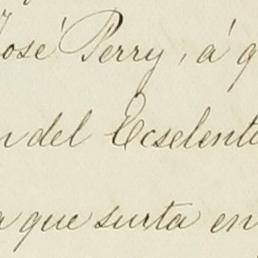 José Perry, á q
n del Ecselente
a que surta en